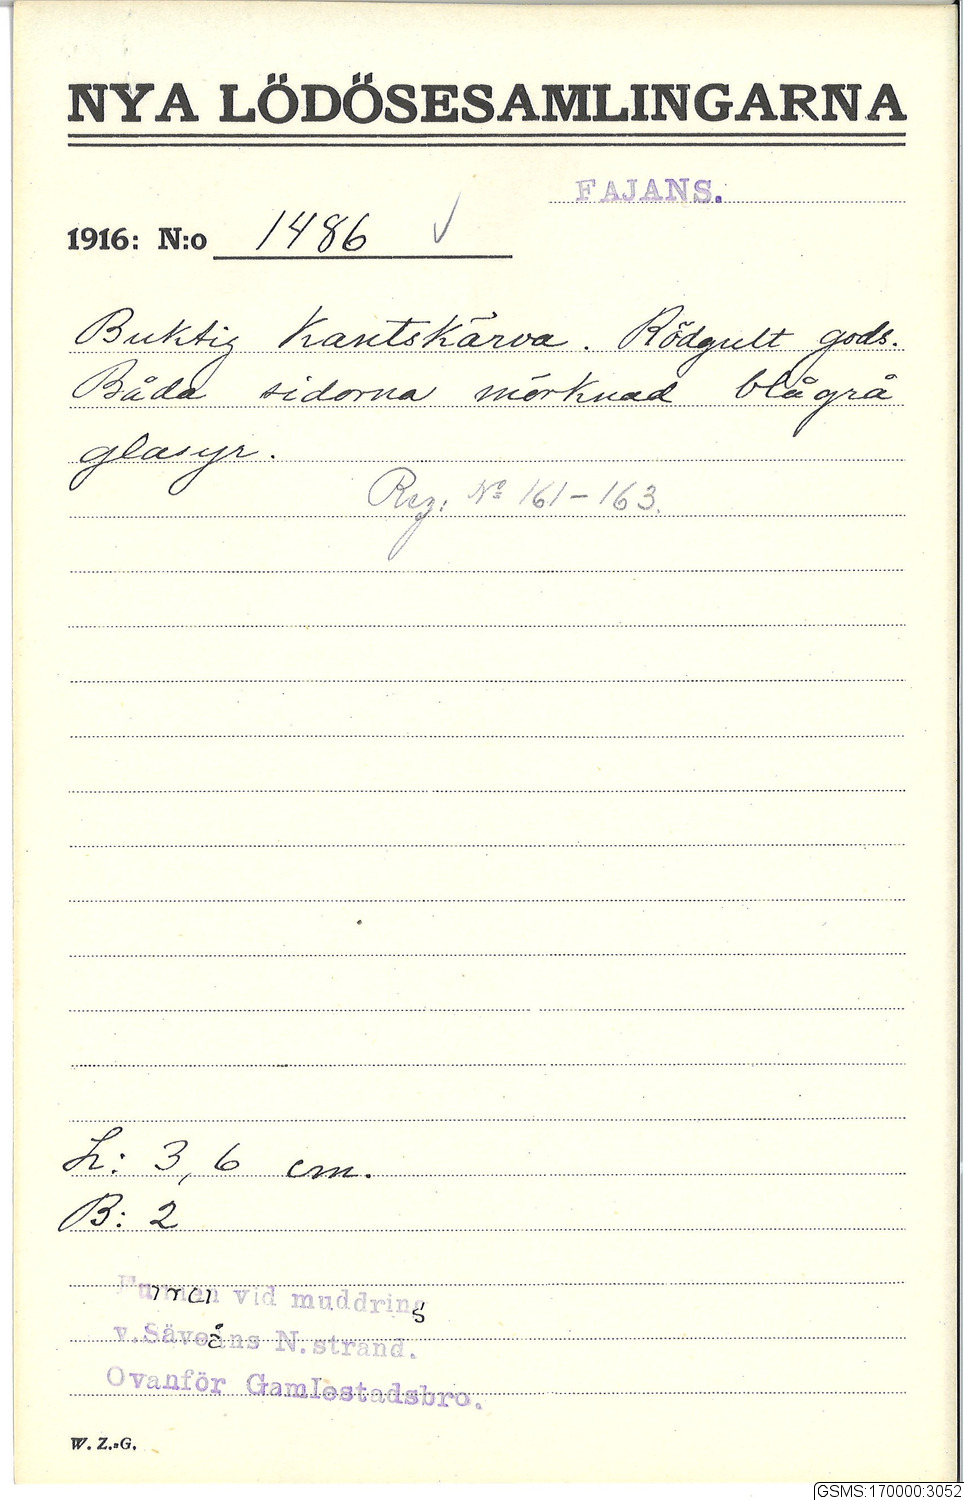 NYA LÖDÖSESAMLINGARNA
FAJANS.
1916: N:o 1486
Buktig kantskärva. Rödgult gods.
Båda sidorna mörknad blågrå
glasyr.
Reg: No 161-163.
L: 3,6 cm.
B: 2
Funnen vid muddring
v. Säveåns N. strand.
Ovanför Gamlestadsbro.
W. Z.-G.
GSMS:170000:3052